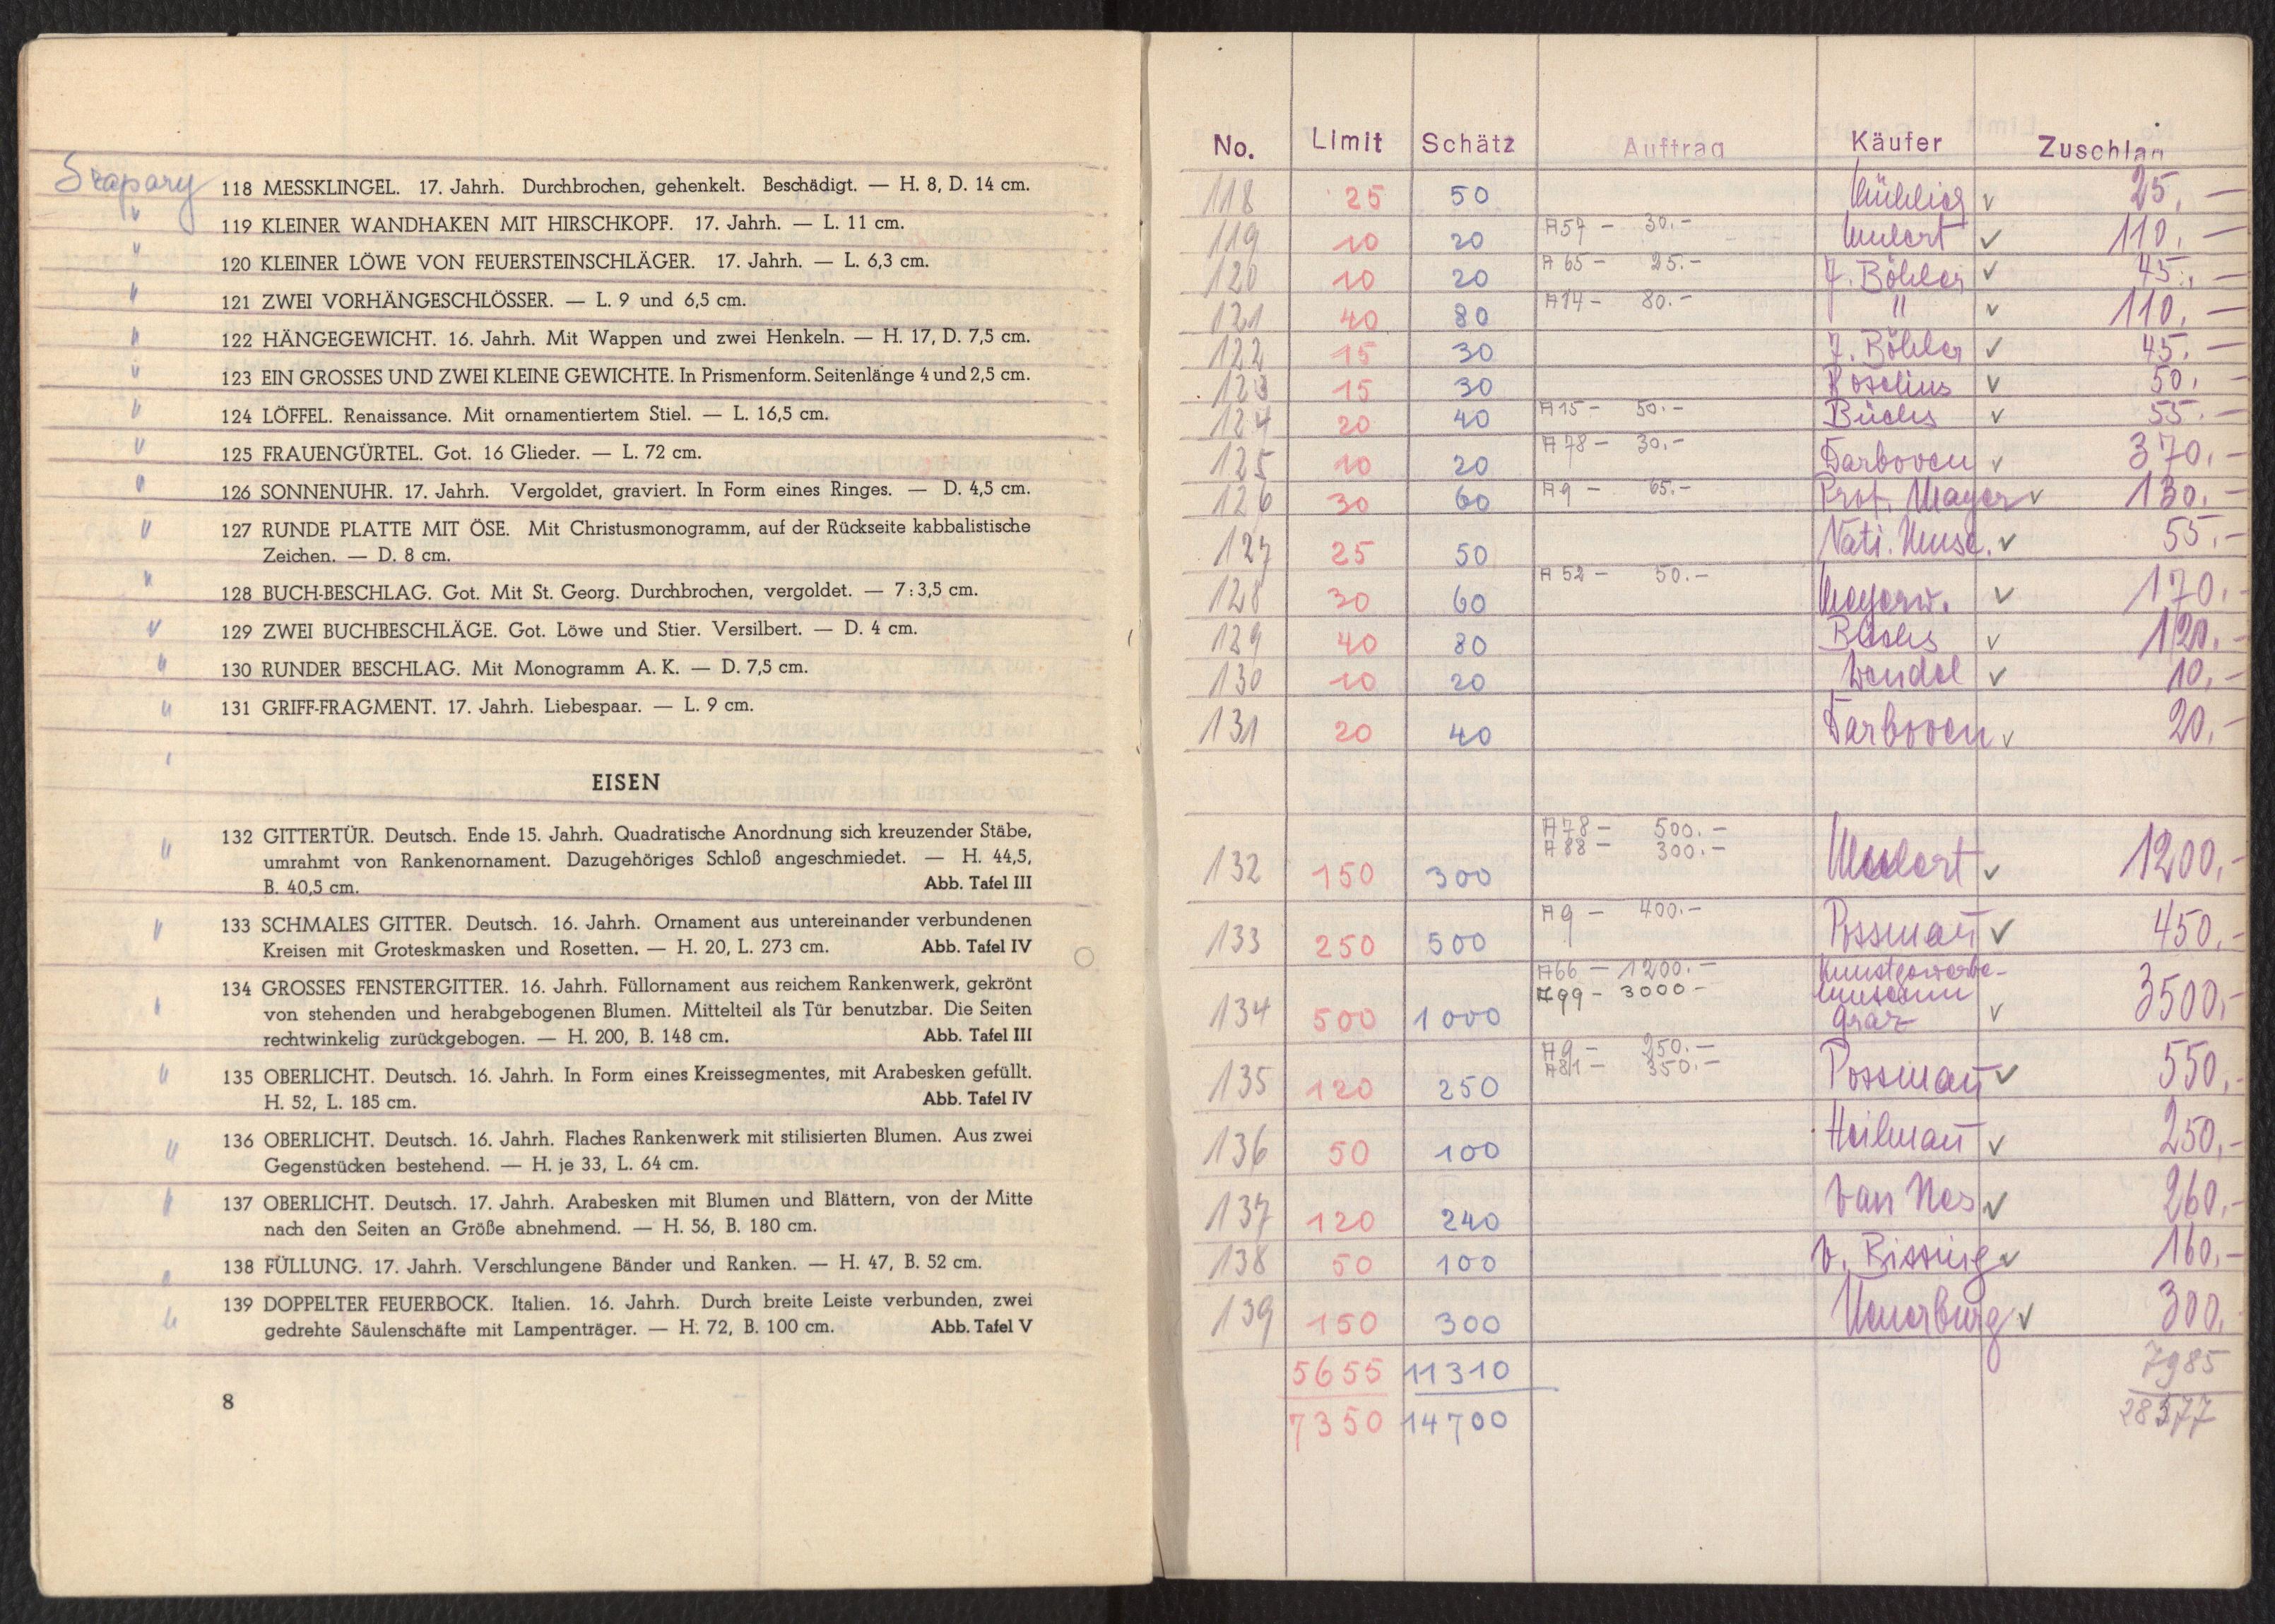 Szapary
118 MESSKLINGEL. 17. Jahrh. Durchbrochen, gehenkelt. Beschädigt. — H. 8, D. 14 cm.
" 119 KLEINER WANDHAKEN MIT HIRSCHKOPF. 17. Jahrh. — L. 11 cm.
" 120 KLEINER LÖWE VON FEUERSTEINSCHLÄGER. 17. Jahrh. — L. 6,3 cm.
" 121 ZWEI VORHÄNGESCHLÖSSER. — L. 9 und 6,5 cm.
" 122 HÄNGEGEWICHT. 16. Jahrh. Mit Wappen und zwei Henkeln. — H. 17, D. 7,5 cm.
" 123 EIN GROSSES UND ZWEI KLEINE GEWICHTE. In Prismenform. Seitenlänge 4 und 2,5 cm.
" 124 LÖFFEL. Renaissance. Mit ornamentiertem Stiel. — L. 16,5 cm.
" 125 FRAUENGÜRTEL. Got. 16 Glieder. — L. 72 cm.
" 126 SONNENUHR. 17. Jahrh. Vergoldet, graviert. In Form eines Ringes. — D. 4,5 cm.
" 127 RUNDE PLATTE MIT ÖSE. Mit Christusmonogramm, auf der Rückseite kabbalistische
Zeichen. — D. 8 cm.
" 128 BUCH-BESCHLAG. Got. Mit St. Georg. Durchbrochen, vergoldet. — 7 : 3,5 cm.
" 129 ZWEI BUCHBESCHLÄGE. Got. Löwe und Stier. Versilbert. — D. 4 cm.
" 130 RUNDER BESCHLAG. Mit Monogramm A. K. — D. 7,5 cm.
" 131 GRIFF-FRAGMENT. 17. Jahrh. Liebespaar. — L. 9 cm.
EISEN
" 132 GITTERTÜR. Deutsch. Ende 15. Jahrh. Quadratische Anordnung sich kreuzender Stäbe,
umrahmt von Rankenornament. Dazugehöriges Schloß angeschmiedet. — H. 44,5,
B. 40,5 cm. Abb. Tafel III
" 133 SCHMALES GITTER. Deutsch. 16. Jahrh. Ornament aus untereinander verbundenen
Kreisen mit Groteskmasken und Rosetten. — H. 20, L. 273 cm. Abb. Tafel IV
" 134 GROSSES FENSTERGITTER. 16. Jahrh. Füllornament aus reichem Rankenwerk, gekrönt
von stehenden und herabgebogenen Blumen. Mittelteil als Tür benutzbar. Die Seiten
rechtwinkelig zurückgebogen. — H. 200, B. 148 cm. Abb. Tafel III
" 135 OBERLICHT. Deutsch. 16. Jahrh. In Form eines Kreissegmentes, mit Arabesken gefüllt.
H. 52, L. 185 cm. Abb. Tafel IV
" 136 OBERLICHT. Deutsch. 16. Jahrh. Flaches Rankenwerk mit stilisierten Blumen. Aus zwei
Gegenstücken bestehend. — H. je 33, L. 64 cm.
" 137 OBERLICHT. Deutsch. 17. Jahrh. Arabesken mit Blumen und Blättern, von der Mitte
nach den Seiten an Größe abnehmend. — H. 56, B. 180 cm.
" 138 FÜLLUNG. 17. Jahrh. Verschlungene Bänder und Ranken. — H. 47, B. 52 cm.
" 139 DOPPELTER FEUERBOCK. Italien. 16. Jahrh. Durch breite Leiste verbunden, zwei
gedrehte Säulenschäfte mit Lampenträger. — H. 72, B. 100 cm. Abb. Tafel V
8
No. Limit Schätz Auftrag Käufer Zuschlag
118 25 50 Mühlig √ 25,—
119 10 20 A57 — 30.— Mulert √ 110,—
120 10 20 A 65 — 25.— J. Böhler √ 45,—
121 40 80 A14 — 80.— " √ 110,—
122 15 30 J. Böhler √ 45,—
123 15 30 Roselius √ 50,—
124 20 40 A15 — 50.— √ 55.—
125 10 20 A78 — 30.— Darboven √ 370,—
126 30 60 A9 — 65.— Prof. Mayer √ 130,—
127 25 50 Nati. Muse. √ 55,—
128 30 60 A 52 — 50.— √ 170.—
129 40 80 √ 120.—
130 10 20 Wendel √ 10,—
131 20 40 Darboven √ 20,—
132 150 300 A78 — 500.— Mulert √ 1200,—
A88 — 300.—
133 250 500 A9 — 400.— Possmañ √ 450,—
134 500 1000 A66 — 1200.— Kunstgewerbe-
A99 — 3000 — museum
Graz √ 3500,—
135 120 250 A9 — 250.— Possmañ √ 550,—
A81 — 350.—
136 50 100 Heilmañ √ 250,—
137 120 240 van Nes √ 260,—
138 50 100 v. Bissing √ 160,—
139 150 300 Neuerburg √ 300,
5655 11310 7985
7350 14700 28377